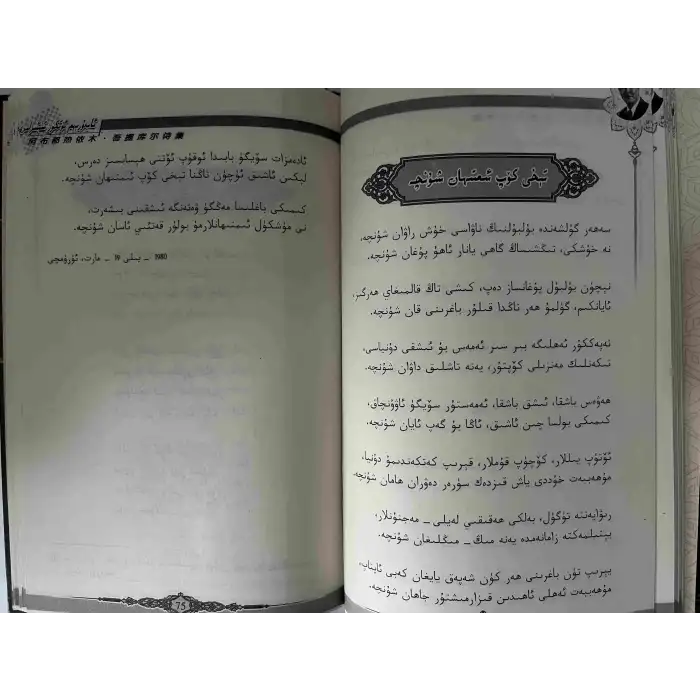 ئابدۇرېھىم ئۆتكۈر شېئىرلىرى
阿布都热依木·吾提库尔诗集
ئادەمزات سۆيگۈ بابىدا ئوقۇپ ئۆتتى ھېسابسىز دەرس،
لېكىن ئاشىق ئۈچۈن تاڭنا تېخى كۆپ ئىمتىھان شۇنچە.
كىمىكى باغلىسا مەڭگۈ ۋەتەنگە ئىشقىنى بىشەرت،
نى مۈشكۈل ئىمتىھانلارمۇ بولۇر قەتئىي ئاسان شۇنچە.
1980 – يىلى 19 – مارت، ئۈرۈمچى
75
تېخى كۆپ ئىمتىھان شۇنچە
سەھەر گۈلشەندە بۇلبۇلنىڭ ناۋاسى خۇش راۋان شۇنچە،
نە خۇشكى، تىڭشىساڭ گاھى يانار ئاھۇ پىغان شۇنچە.
نېچۈن بۇلبۇل پىغانساز دەپ، كىشى تاڭ قالمىغاي ھەرگىز،
ئايانكىم، گۈلمۇ ھەر تاڭدا قىلۇر باغرىنى قان شۇنچە.
نەپەككۇر ئەھلىگە بىر سىر ئەمەس بۇ ئىشقى دۇنياسى،
تىكەنلىك مەنزىلى كۆپتۇر، يەنە تاشلىق داۋان شۇنچە.
ھەۋەس باشقا، ئىشق باشقا، ئەمەستۇر سۆيگۈ ئاۋۇنچاق،
كىمىكى بولسا چىن ئاشىق، ئاڭا بۇ گەپ ئايان شۇنچە.
ئۆتۈپ يىللار، كۆچۈپ قۇملار، قېرىپ كەتكەندىمۇ دۇنيا،
مۇھەببەت خۇددى ياش قىزدەك سۈرەر دەۋران ھامان شۇنچە.
رىۋايەتتە تۈگۈل، بەلكى ھەقىقىي لەيلى – مەجنۇنلار،
يېتىلمەكتە زامانەمدە يەنە مىڭ – مىڭلىغان شۇنچە.
يېرىپ تۈن باغرىنى ھەر كۈن شەپەق يايغان كەبى ئاپتاپ،
مۇھەببەت ئەھلى ئاھىدىن قىزارمىشتۇر جاھان شۇنچە.